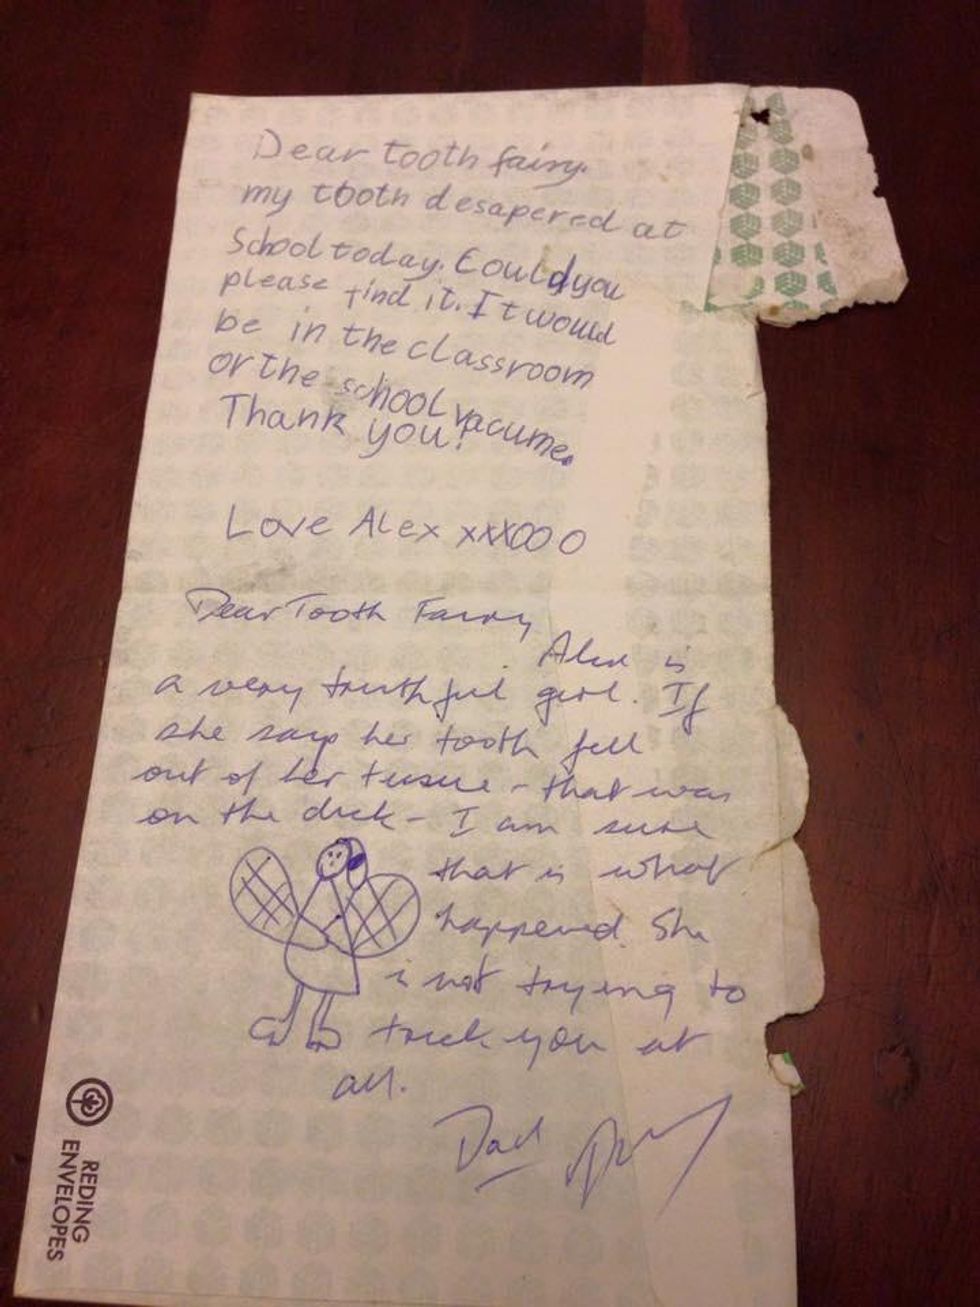 Dear tooth fairy.
my tooth desapered at
School today. Could you
please find it. It would
be in the classroom
or the school vacume.
Thank you!
Love Alex xxxooo
Dear Tooth Fairy
Alex is
a very truthful girl. If
she says her tooth fell
out of her tissue - that was
on the desk - I am sure
that is what
happened. She
is not trying to
trick you at
all.
Dad
REDING
ENVELOPES